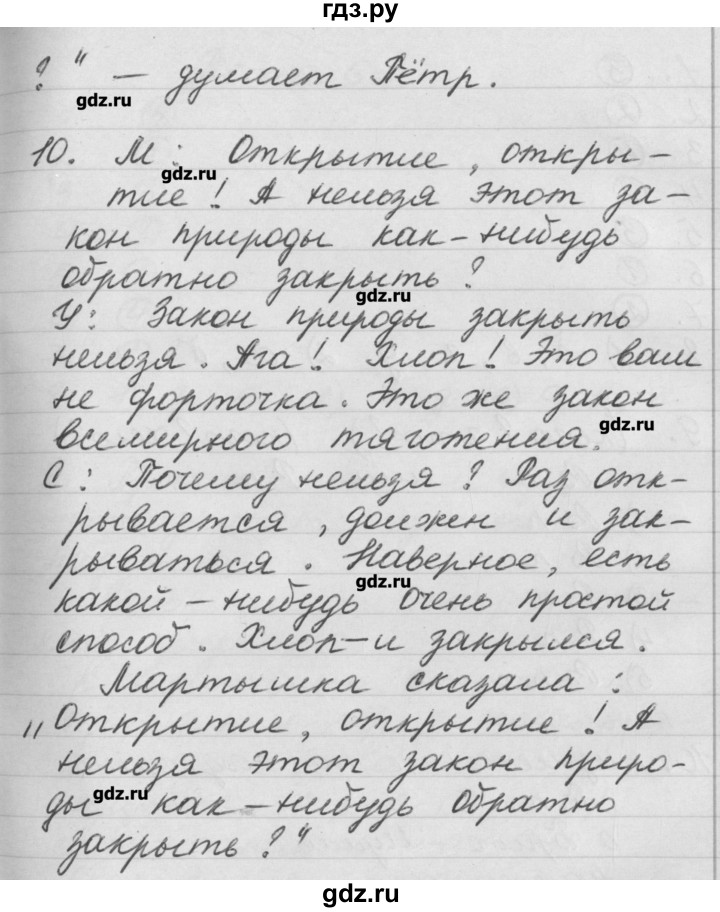 гдз.ру
?" – думает Пётр.
gdz.ru
10. М: Открытие, откры-
gdz.ru
тие! А нельзя этот за-
кон природы как-нибудь
обратно закрыть?
gdz.ru
У: Закон природы закрыть
нельзя. Ага! Хлоп! Это вам
не форточка. Это же закон
gdz.ru
всемирного тяготения.
С: Почему нельзя? Раз отк-
рывается, должен и зак-
рываться. Наверное, есть
gdz.ru
какой-нибудь очень простой
способ. Хлоп-и закрылся.
Мартышка сказала:
„Открытие, открытие! А
нельзя этот закон приро-
gdz.ru
ды как-нибудь обратно
закрыть?"
gdz.ru